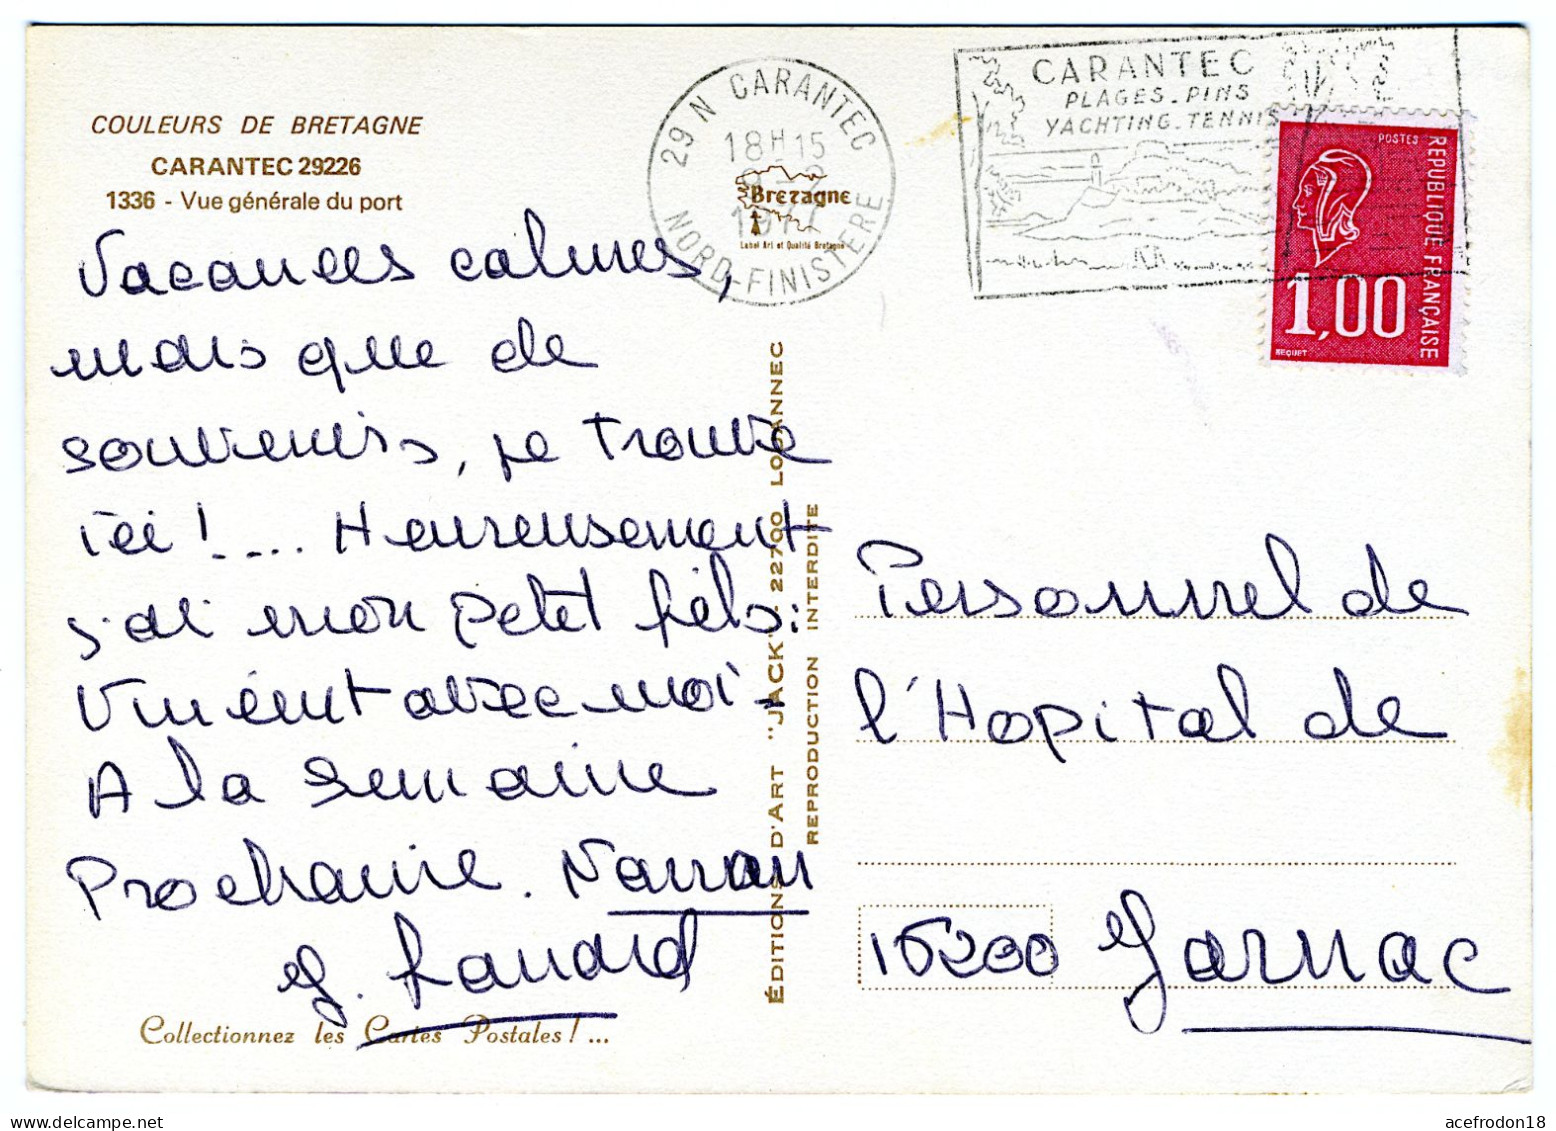 COULEURS DE BRETAGNE
CARANTEC 29226
1336 - Vue générale du port
Vacances calmes,
mais que de
souvenirs, je trouve
ici !.... Heureusement
j'ai mon petit fils :
Vincent avec moi.
A la semaine
Prochaine.
Collectionnez les Cartes Postales ! ...
29 N CARANTEC
18H15
NORD-FINISTERE
Bretagne
Label Art et Qualité Bretagne
CARANTEC
PLAGES. PINS
YACHTING. TENNIS
POSTES
REPUBLIQUE FRANÇAISE
1,00
BEQUET
ÉDITIONS D'ART "JACK" 22700 LOUANNEC
REPRODUCTION INTERDITE
Personnel de
l'Hopital de
16200 Jarnac
acefrodon18